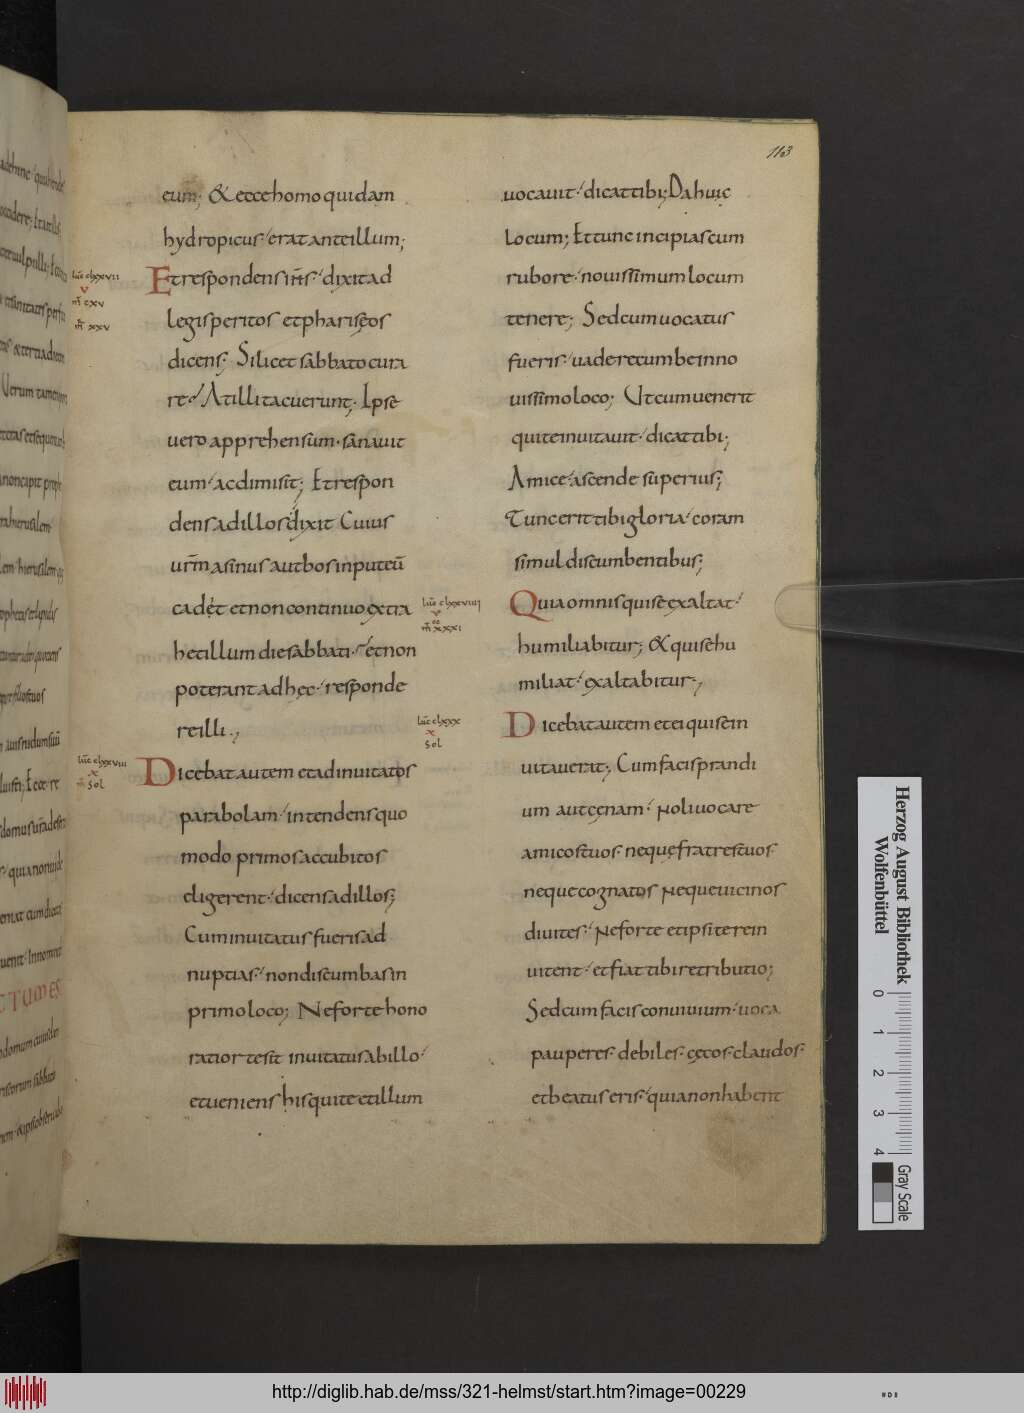 113
eum; & ecce homo quidam
hydropicus erat ante illum;
Et respondens ih̅s dixit ad
legisperitos et phariseos
dicens; Si licet sabbato cura
re At illi tacuerunt. Ipse
uero apprehensum. sanauit
eum ac dimisit; Et respon
dens ad illos dixit Cuius
ur̅m asinus aut bos in puteu̅
cadet et non continuo extra
het illum die sabbati. Et non
poterant ad hec. responde
re illi.;
Dicebat autem et ad inuitatos
parabolam intendens quo
modo primos accubitos
eligerent. dicens ad illos;
Cum inuitatus fueris ad
nuptias. non discumbas in
primo loco; Ne forte hono
ratior te sit inuitatus ab illo
et ueniens his qui te et illum
luc̅ clxxvii
v
m̅ cxv
m̅r xxv
luc̅ clxxviii
x
sol
uocauit dicat tibi; Da huic
locum; Et tunc incipias cum
rubore. nouissimum locum
tenere; Sed cum uocatus
fueris. uade recumbe in no
uissimo loco; Ut cum uenerit
qui te inuitauit dicat tibi;
Amice ascende superius;
Tunc erit tibi gloria coram
simul discumbentibus;
Quia omnis qui se exaltat
humiliabitur; & qui se hu
miliat exaltabitur;
Dicebat autem et ei qui se in
uitauerat; Cum facis prandi
um aut cenam. Noli uocare
amicos tuos. neque fratres tuos.
neque cognatos neque uicinos
diuites. Ne forte et ipsi te rein
uitent. et fiat tibi retributio;
Sed cum facis conuiuium. uoca
pauperes. debiles. cecos. claudos.
et beatus eris. quia non habent
luc̅ clxxviiii
v
m̅ xxxi
luc̅ clxxx
x
sol
Herzog August Bibliothek
Wolfenbüttel
0 1 2 3 4
Gray Scale
http://diglib.hab.de/mss/321-helmst/start.htm?image=00229